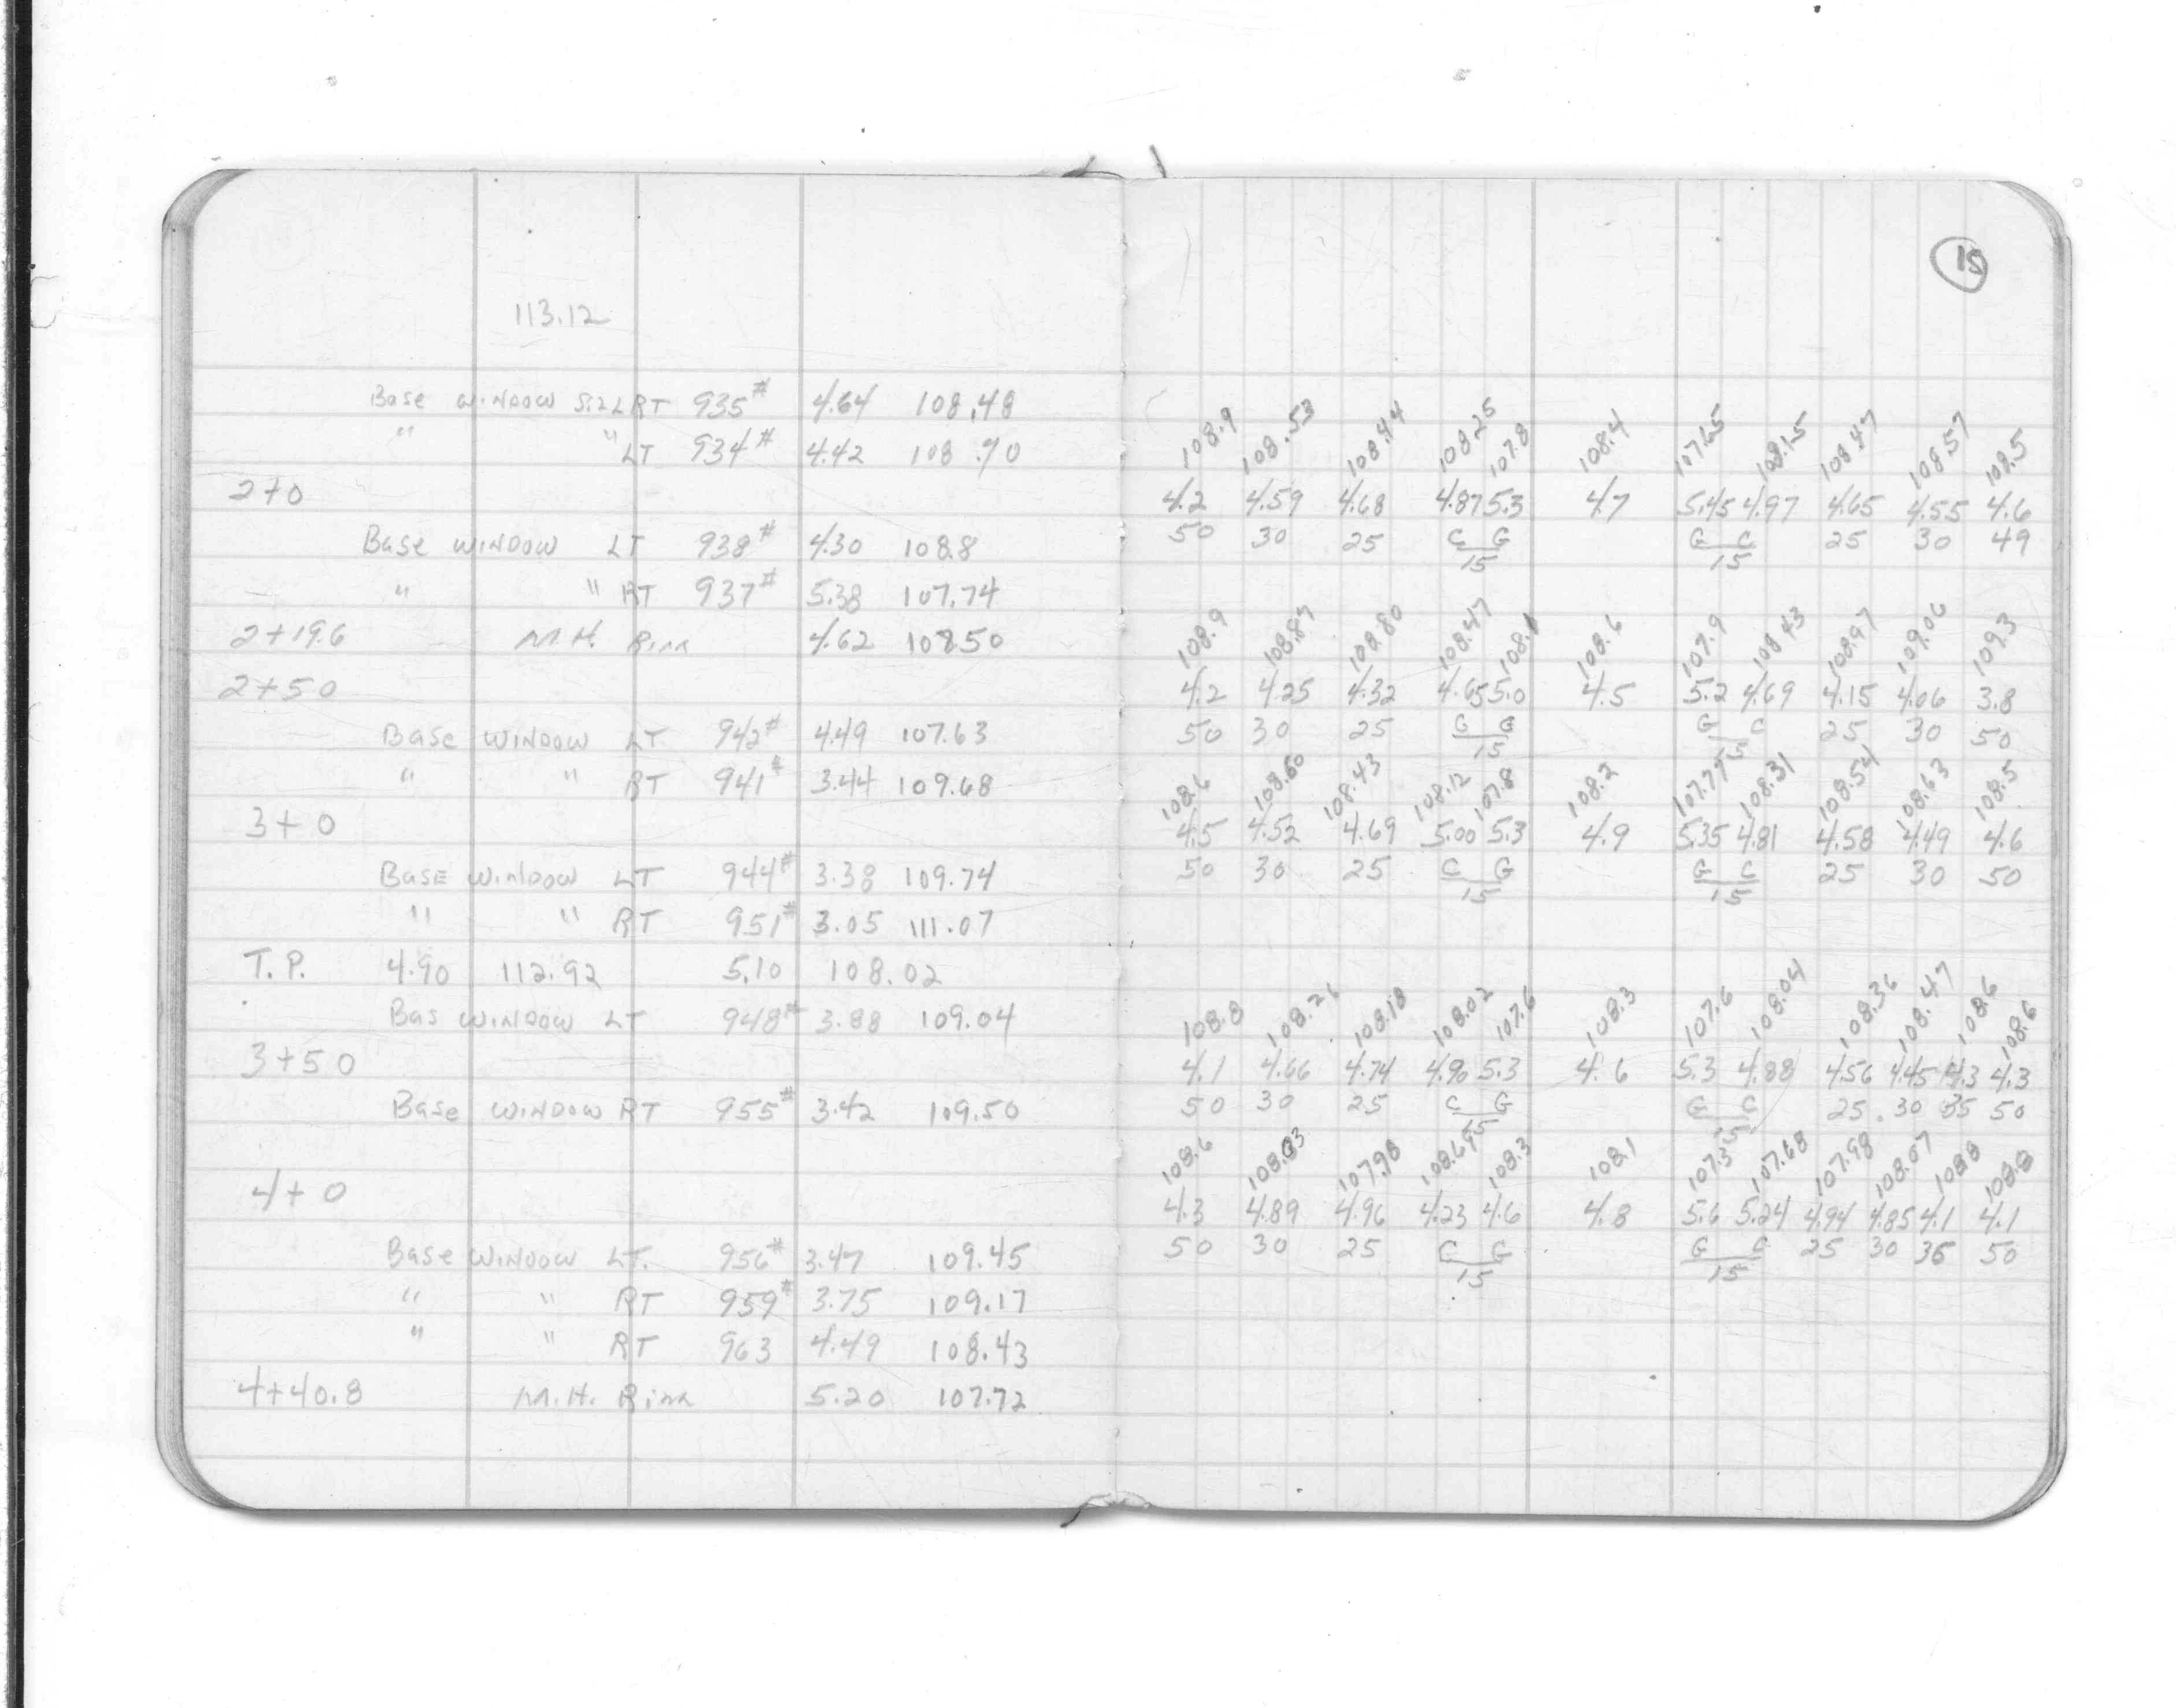 113.12
Base WINDOW Sill RT 935# 4.64 108.48
" " LT 934# 4.42 108.70
2+0
Base WINDOW LT 938# 4.30 108.8
" " RT 937# 5.38 107.74
2+19.6 M.H. Rim 4.62 108.50
2+50
Base WINDOW LT 942# 4.49 107.63
" " RT 941# 3.44 109.68
3+0
BASE WINDOW LT 944# 3.38 109.74
" " RT 951# 3.05 111.07
T.P. 4.90 112.92 5.10 108.02
Bas WINDOW LT 948# 3.88 109.04
3+50
Base WINDOW RT 955# 3.42 109.50
4+0
Base WINDOW LT. 956# 3.47 109.45
" " RT 959# 3.75 109.17
" " RT 963 4.49 108.43
4+40.8 M.H. Rim 5.20 107.72
15
108.9 108.53 108.44 108.25 107.8 108.4 107.65 108.15 108.47 108.57 108.5
4.2 4.59 4.68 4.87 5.3 4.7 5.45 4.97 4.65 4.55 4.6
50 30 25 C G G C 25 30 49
15 15
108.9 108.87 108.80 108.47 108.1 108.6 107.9 108.43 108.97 109.06 109.3
4.2 4.25 4.32 4.65 5.0 4.5 5.2 4.69 4.15 4.06 3.8
50 30 25 C G G C 25 30 50
15 15
108.6 108.60 108.43 108.12 107.8 108.2 107.77 108.31 108.54 108.63 108.5
4.5 4.52 4.69 5.00 5.3 4.9 5.35 4.81 4.58 4.49 4.6
50 30 25 C G G C 25 30 50
15 15
108.8 108.26 108.18 108.02 107.6 108.3 107.6 108.04 108.36 108.47 108.6 108.6
4.1 4.66 4.74 4.90 5.3 4.6 5.3 4.88 4.56 4.45 4.3 4.3
50 30 25 C G G C 25 30 35 50
15 15
108.6 108.03 107.98 108.69 108.3 108.1 107.3 107.68 107.98 108.07 108.8 108.8
4.3 4.89 4.96 4.23 4.6 4.8 5.6 5.24 4.94 4.85 4.1 4.1
50 30 25 C G G C 25 30 35 50
15 15